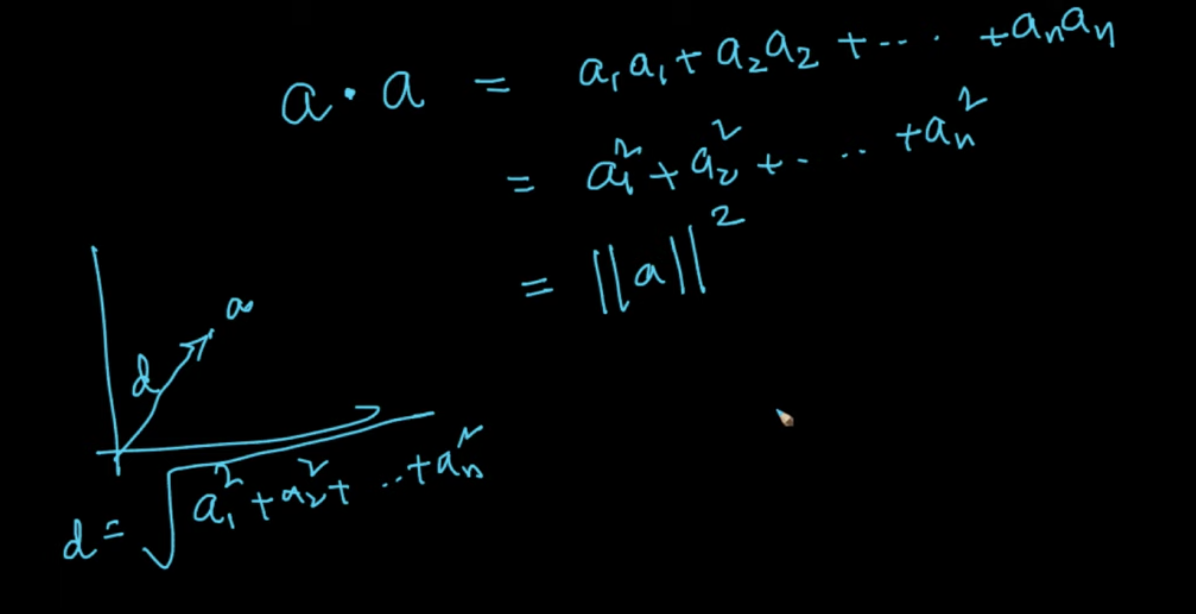 a · a = a₁a₁ + a₂a₂ + ... . + aₙaₙ
= a₁² + a₂² + . .. + aₙ²
= ||a||²
a
d
d = √(a₁² + a₂² + ..+ aₙ²)